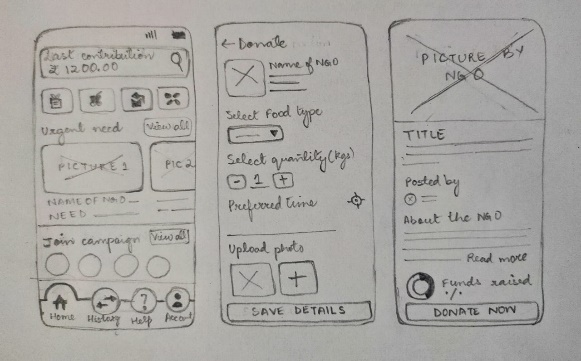 Last contribution
₹ 1200.00
Urgent need View all
PICTURE 1
PIC 2
NAME OF NGO
NEED
Join campaign View all
Home History Help Account
← Donate
Name of NGO
Select Food type
Select quantity (kgs)
- 1 +
Preferred time
Upload photo
+
SAVE DETAILS
PICTURE BY
NGO
TITLE
Posted by
About the NGO
Read more
Funds raised
%
DONATE NOW